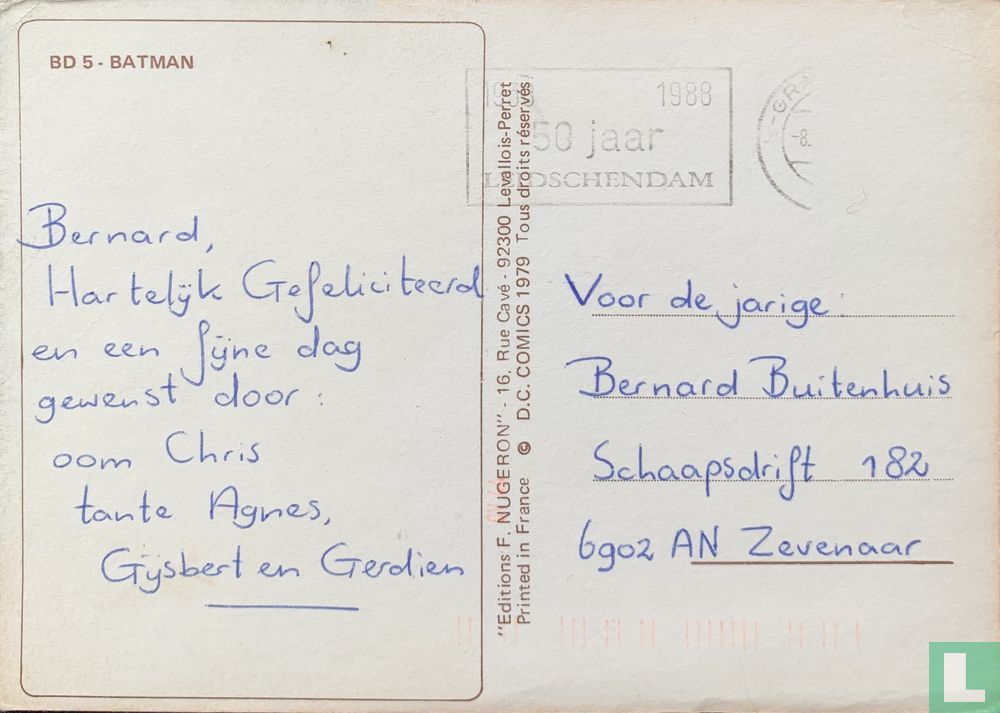 BD 5 - BATMAN
Bernard,
Hartelijk Gefeliciteerd
en een fijne dag
gewenst door:
oom Chris
tante Agnes,
Gijsbert en Gerdien
"Editions F. NUGERON" - 16, Rue Cavé - 92300 Levallois-Perret
Printed in France © D.C. COMICS 1979 Tous droits réservés
1988
50 jaar
LEIDSCHENDAM
-8.
Voor de jarige:
Bernard Buitenhuis
Schaapsdrift 182
6902 AN Zevenaar
L